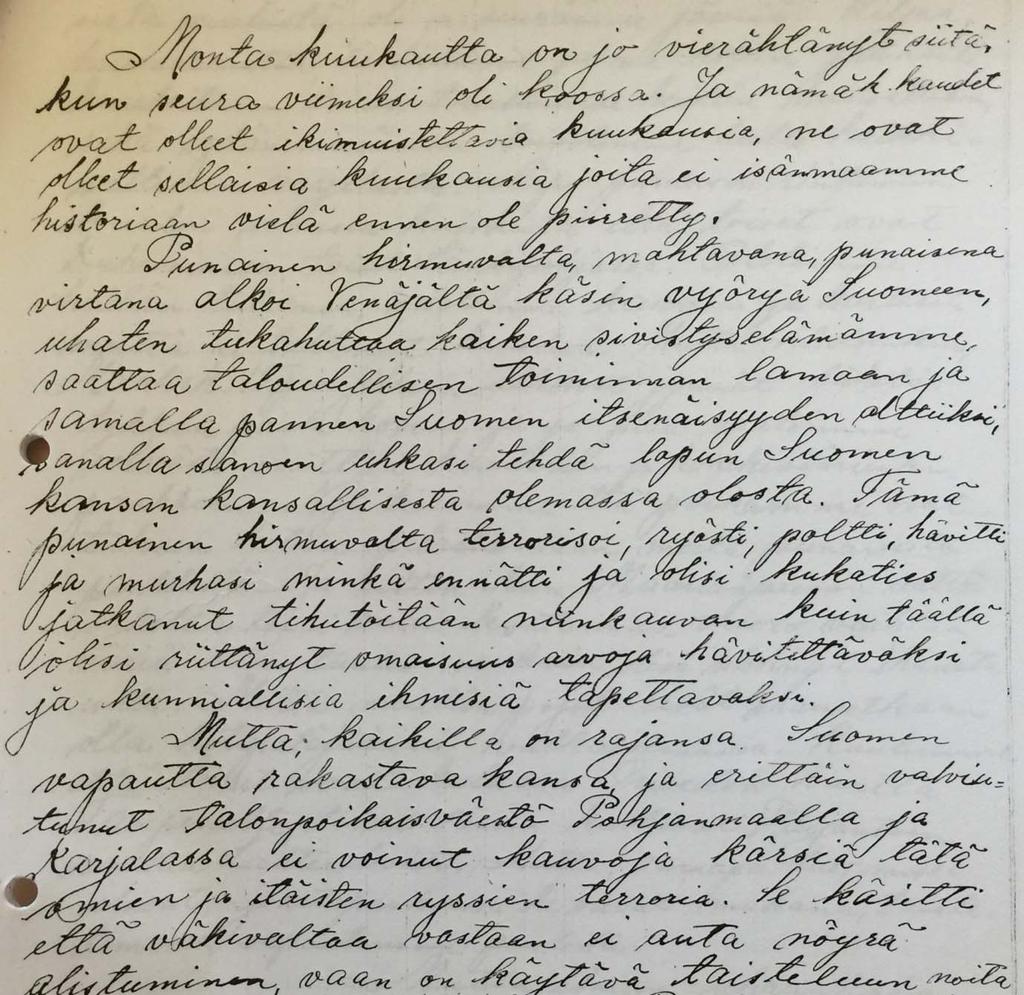 Monta kuukautta on jo vierähtänyt siitä,
kun seura viimeksi oli koossa. Ja nämä k.kaudet
ovat olleet ikimuistettavia kuukausia, ne ovat
olleet sellaisia kuukausia joita ei isänmaamme
historiaan vielä ennen ole piirretty.
Punainen hirmuvalta, mahtavana, punaisena
virtana alkoi Venäjältä käsin vyöryä Suomeen,
uhaten tukahuttaa kaiken sivistyselämämme,
saattaa taloudellisen toiminnan lamaan ja
samalla pannen Suomen itsenäisyyden alttiiksi,
sanalla sanoen uhkasi tehdä lopun Suomen
kansan kansallisesta olemassa olosta. Tämä
punainen hirmuvalta terrorisoi, ryösti, poltti, hävitti
ja murhasi minkä ennätti ja olisi kukaties
jatkanut tihutöitään niinkauvan kuin täällä
olisi riittänyt omaisuus arvoja hävitettäväksi
ja kunniallisia ihmisiä tapettavaksi.
Mutta; kaikilla on rajansa. Suomen
vapautta rakastava kansa, ja erittäin valvis=
tunut talonpoikaisväestö Pohjanmaalla ja
Karjalassa ei voinut kauvoja kärsiä tätä
omien ja itäisten ryssien terroria. Se käsitti
että väkivaltaa vastaan ei auta nöyrä
alistuminen, vaan on käytävä taisteluun noita